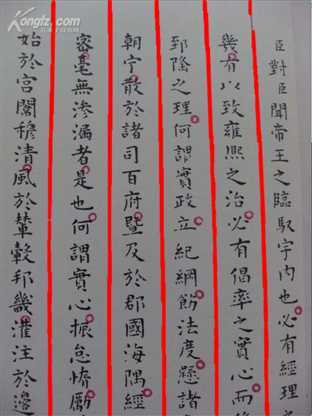 Kongfz.com
臣對臣聞帝王之臨馭宇內也必有經理
幾有以致雍熙之治必有倡率之實心而
郅隆之理何謂實政立紀綱飭法度懸諸
朝宁散於諸司百府暨及於郡國海隅經
密毫無滲漏者是也何謂實心振怠惰勵
始於宮閣穆清風於輦轂邦畿灌注於邊